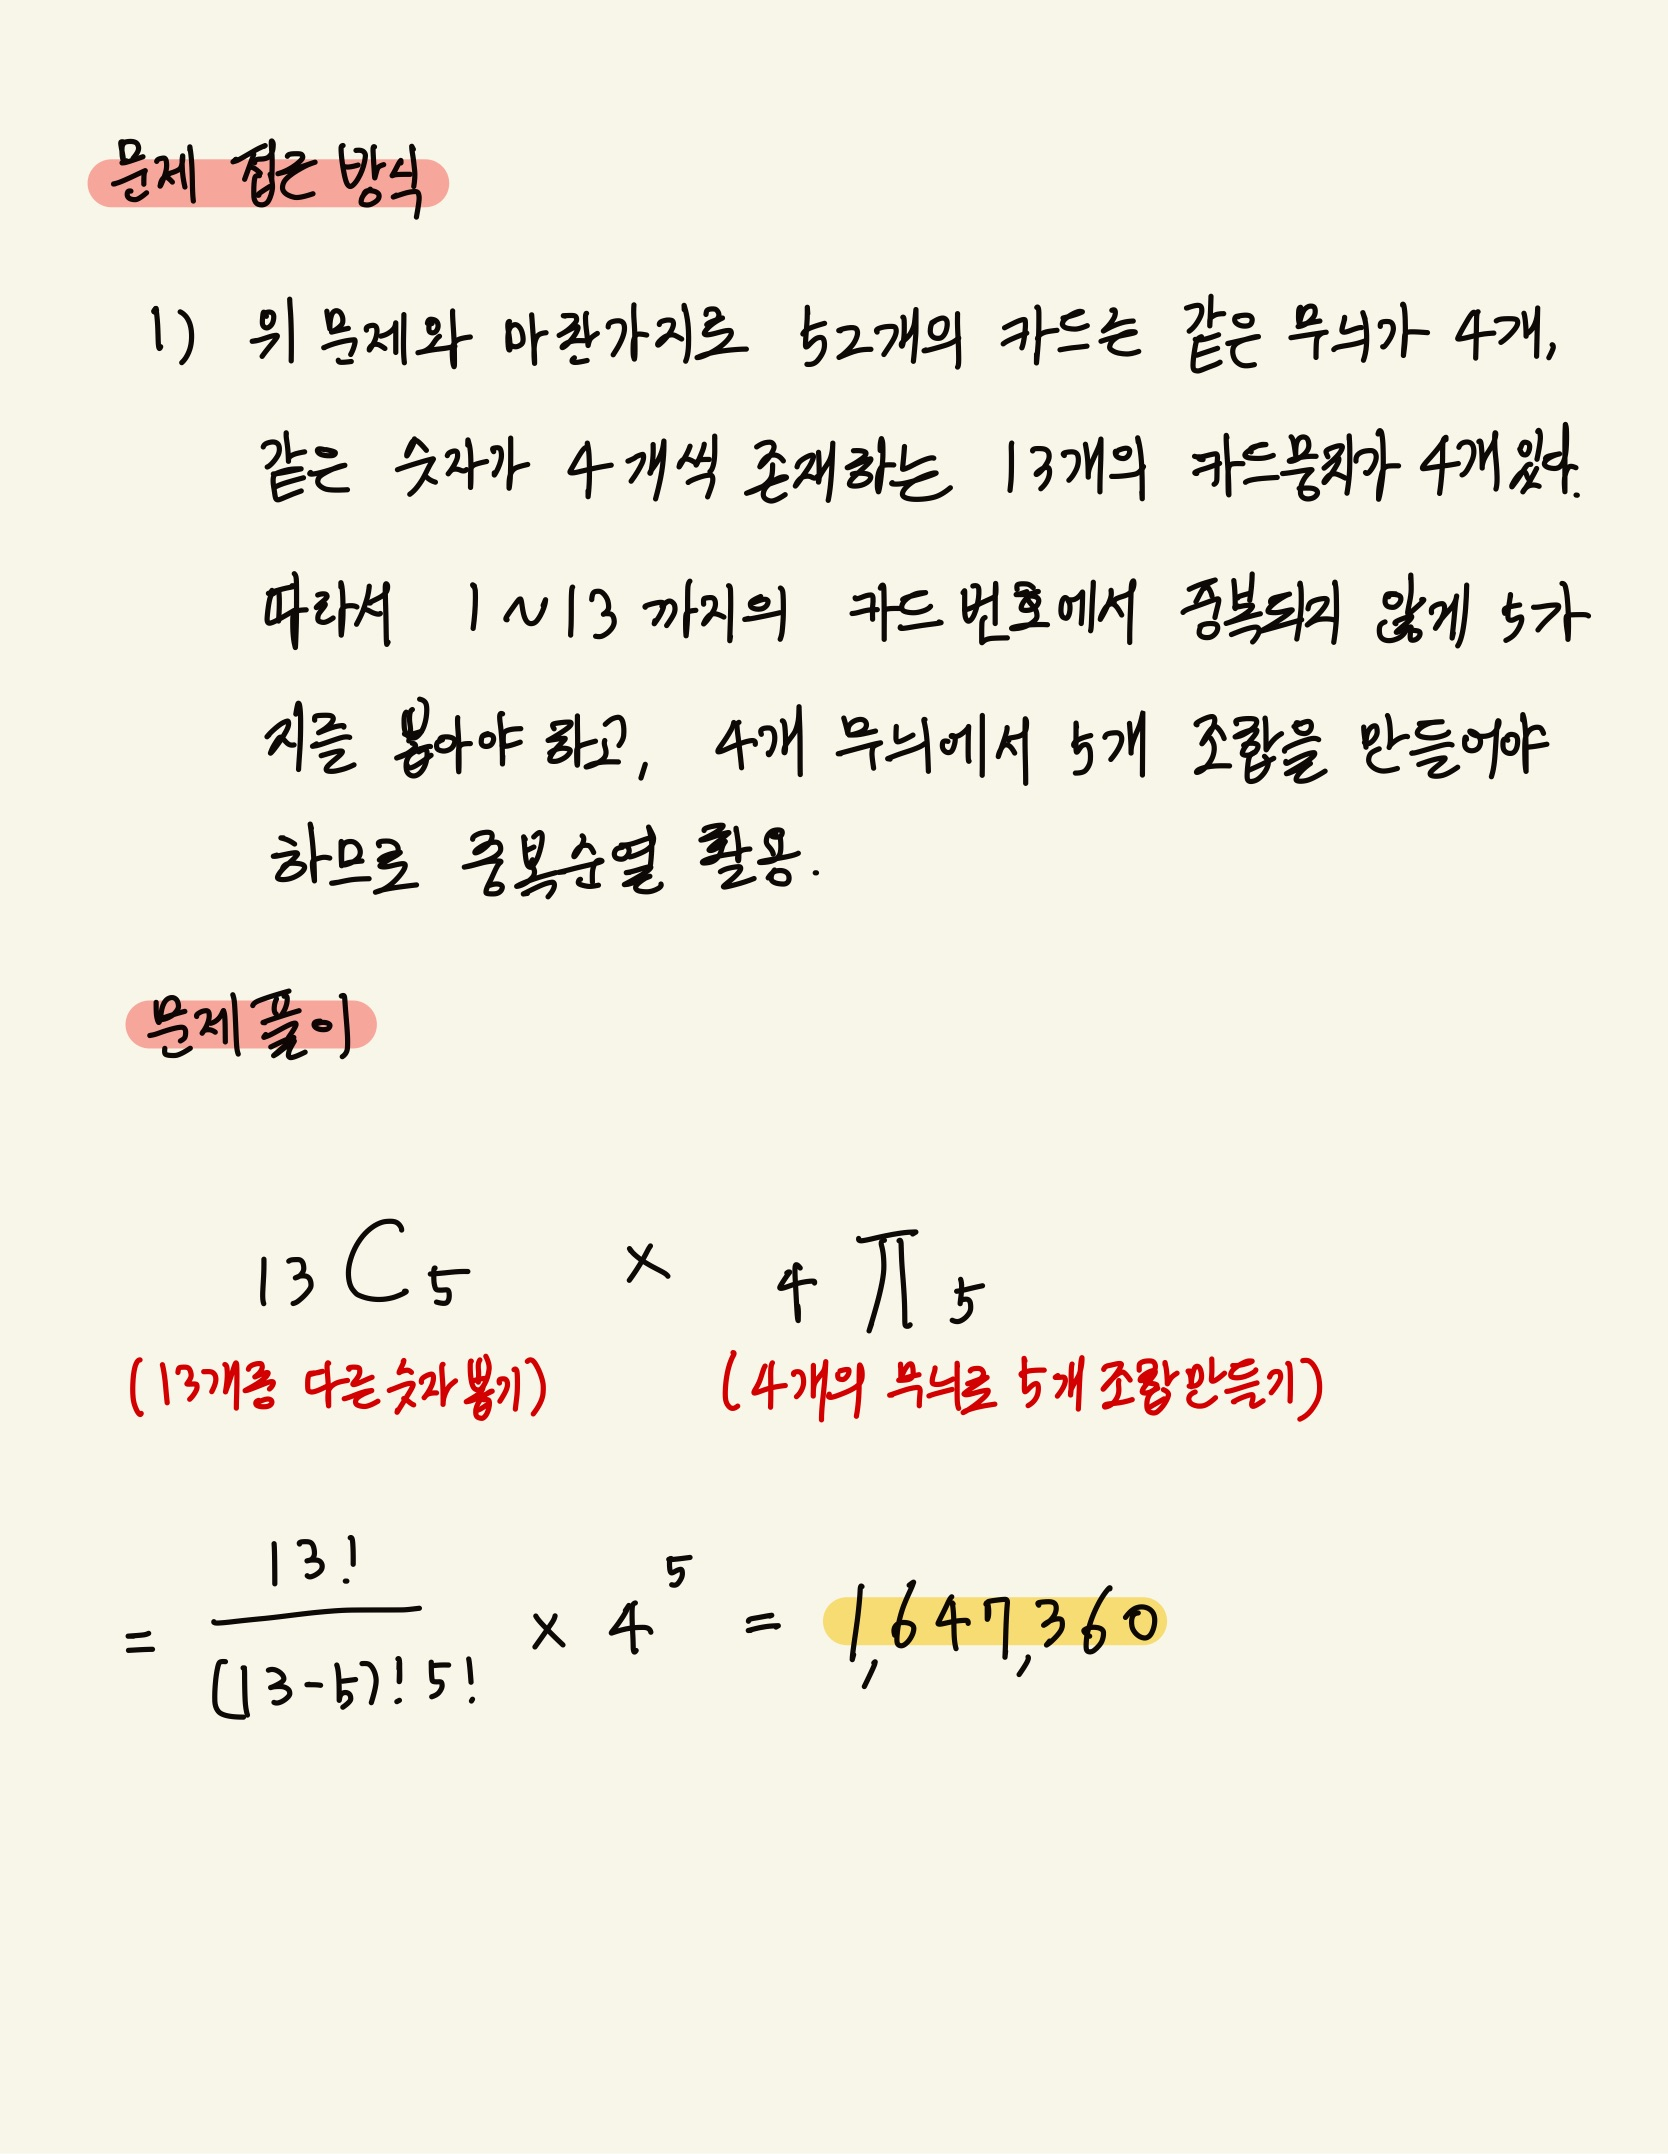 문제 접근 방식
1) 위 문제와 마찬가지로 52개의 카드는 같은 무늬가 4개,
같은 숫자가 4개씩 존재하는 13개의 카드뭉치가 4개 있다.
따라서 1~13까지의 카드 번호에서 중복되지 않게 5가
지를 뽑아야 하고, 4개 무늬에서 5개 조합을 만들어야
하므로 중복순열 활용.
문제풀이
13 C 5 × 4 π 5
(13개중 다른 숫자 뽑기) (4개의 무늬로 5개 조합 만들기)
= 13! / (13-5)! 5! × 4^5 = 1,647,360